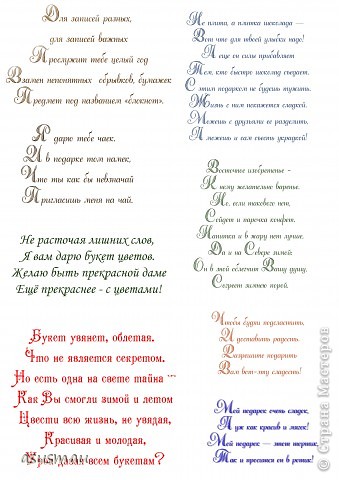 Для записей разных,
для записей важных
Прослужит тебе целый год
Взамен непонятных обрывков, бумажек
Предмет под названием «блокнот».
Я дарю тебе чаек.
И в подарке том намек,
Что ты как бы невзначай
Пригласишь меня на чай.
Не расточая лишних слов,
Я вам дарю букет цветов.
Желаю быть прекрасной даме
Ещё прекраснее - с цветами!
Букет увянет, облетая.
Что не является секретом.
Но есть одна на свете тайна
Как Вы смогли зимой и летом
Цвести всю жизнь, не увядая,
Красивая и молодая,
всем букетам?
Не плита, а плитка шоколада —
Вот что для твоей улыбки надо!
А еще он силы прибавляет
Тем, кто быстро шоколад съедает.
С этим подарком не будешь тужить,
Жизнь с ним покажется сладкой.
Можешь с друзьями ее разделить,
А можешь и сам съесть украдкой!
Восточное изобретенье -
К нему желательно варенье.
Но, если такового нет,
Сойдет и парочка конфет.
Напиток и в жару пьют лучше,
Да и на Севере зимой:
Он в зной облегчит Вашу душу,
Согреет зимнею порой.
Чтобы будни подсластить,
И усталость
Разрешите подарить
Вам вот-эту сладость!
Мой подарок очень сладок,
А уж как красив и мягок!
Мой подарок — этот тортик,
Так и просится он в ротик!
© Страна Мастеров
asusm.ru